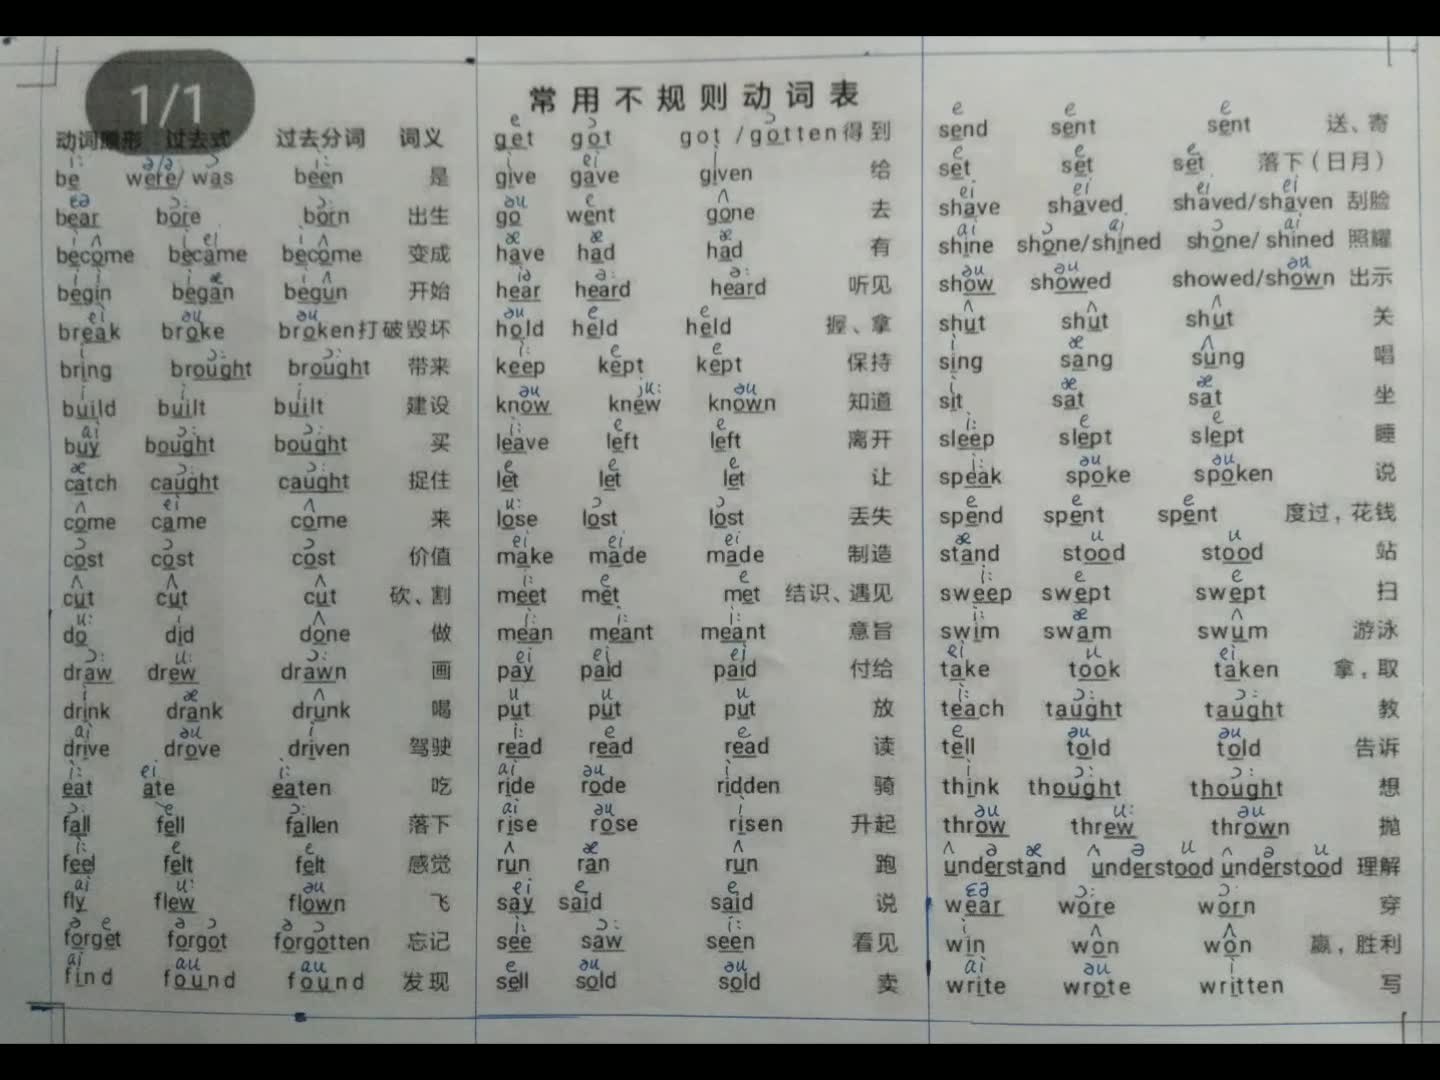 1/1
常用不规则动词表
动词原形 过去式 过去分词 词义
be were/was been 是
bear bore born 出生
become became become 变成
begin began begun 开始
break broke broken 打破毁坏
bring brought brought 带来
build built built 建设
buy bought bought 买
catch caught caught 捉住
come came come 来
cost cost cost 价值
cut cut cut 砍、割
do did done 做
draw drew drawn 画
drink drank drunk 喝
drive drove driven 驾驶
eat ate eaten 吃
fall fell fallen 落下
feel felt felt 感觉
fly flew flown 飞
forget forgot forgotten 忘记
find found found 发现
get got got/gotten 得到
give gave given 给
go went gone 去
have had had 有
hear heard heard 听见
hold held held 握、拿
keep kept kept 保持
know knew known 知道
leave left left 离开
let let let 让
lose lost lost 丢失
make made made 制造
meet met met 结识、遇见
mean meant meant 意旨
pay paid paid 付给
put put put 放
read read read 读
ride rode ridden 骑
rise rose risen 升起
run ran run 跑
say said said 说
see saw seen 看见
sell sold sold 卖
send sent sent 送、寄
set set set 落下(日月)
shave shaved shaved/shaven 刮脸
shine shone/shined shone/shined 照耀
show showed showed/shown 出示
shut shut shut 关
sing sang sung 唱
sit sat sat 坐
sleep slept slept 睡
speak spoke spoken 说
spend spent spent 度过,花钱
stand stood stood 站
sweep swept swept 扫
swim swam swum 游泳
take took taken 拿,取
teach taught taught 教
tell told told 告诉
think thought thought 想
throw threw thrown 抛
understand understood understood 理解
wear wore worn 穿
win won won 赢,胜利
write wrote written 写